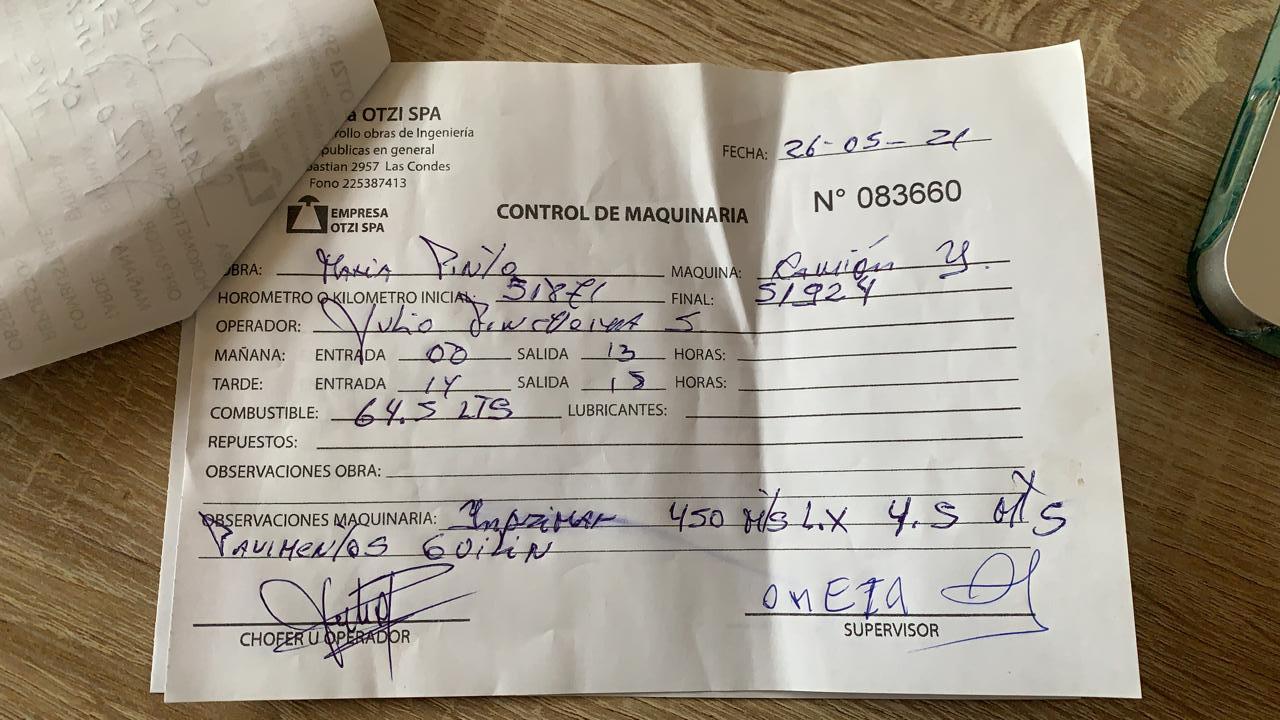 a OTZI SPA
rollo obras de Ingeniería
publicas en general
bastian 2957 Las Condes
Fono 225387413
EMPRESA
OTZI SPA
FECHA: 26-05-21
N° 083660
CONTROL DE MAQUINARIA
OBRA: Maria Pinto MAQUINA: Camión Y.
HOROMETRO O KILOMETRO INICIAL: 51871 FINAL: 51924
OPERADOR: Julio S
MAÑANA: ENTRADA 08 SALIDA 13 HORAS:
TARDE: ENTRADA 14 SALIDA 18 HORAS:
COMBUSTIBLE: 64.5 LTS LUBRICANTES:
REPUESTOS:
OBSERVACIONES OBRA:
OBSERVACIONES MAQUINARIA: Imprimar 450 Mts L.X 4.5 Mts
Pavimentos
CHOFER U OPERADOR
SUPERVISOR